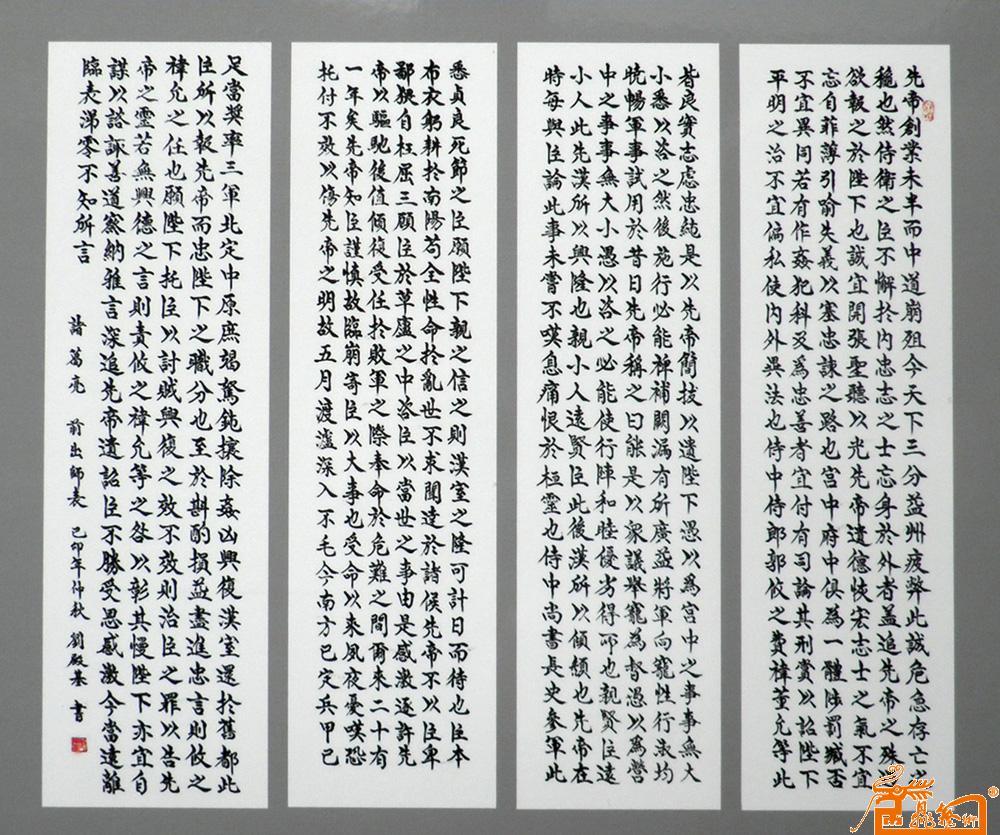 先帝創業未半而中道崩殂今天下三分益州疲弊此誠危急存亡之
穐也然侍衛之臣不懈於内忠志之士忘身於外者蓋追先帝之殊遇
欲報之於陛下也誠宜開張聖聽以光先帝遺德恢宏志士之氣不宜
忘自菲薄引喻失義以塞忠諫之路也宮中府中俱為一體陟罰臧否
不宜異同若有作姦犯科及為忠善者宜付有司論其刑賞以詔陛下
平明之治不宜偏私使内外異法也侍中侍郎郭攸之費禕董允等此
皆良實志慮忠純是以先帝簡拔以遺陛下愚以為宮中之事事無大
小悉以咨之然後施行必能裨補闕漏有所廣益將軍向寵性行淑均
曉暢軍事試用於昔日先帝稱之曰能是以衆議舉寵為督愚以為營
中之事事無大小愚以咨之必能使行陣和睦優劣得所也親賢臣遠
小人此先漢所以興隆也親小人遠賢臣此後漢所以傾頽也先帝在
時每與臣論此事未嘗不嘆息痛恨於桓靈也侍中尚書長史參軍此
悉貞良死節之臣願陛下親之信之則漢室之隆可計日而待也臣本
布衣躬耕於南陽苟全性命於亂世不求聞達於諸侯先帝不以臣卑
鄙猥自枉屈三顧臣於草廬之中咨臣以當世之事由是感激遂許先
帝以驅馳後值傾復受任於敗軍之際奉命於危難之間爾來二十有
一年矣先帝知臣謹慎故臨崩寄臣以大事也受命以來夙夜憂嘆恐
托付不效以傷先帝之明故五月渡瀘深入不毛今南方已定兵甲已
足當獎率三軍北定中原庶竭駑鈍攘除姦凶興復漢室還於舊都此
臣所以報先帝而忠陛下之職分也至於斟酌損益盡進忠言則攸之
禕允之任也願陛下托臣以討賊興復之效不效則治臣之罪以告先
帝之靈若無興德之言則責攸之禕允等之咎以彰其慢陛下亦宜自
謀以諮諏善道察納雅言深追先帝遺詔臣不勝受恩感激今當遠離
臨表涕零不知所言
諸葛亮 前出師表 己卯年仲秋 劉殿基 書